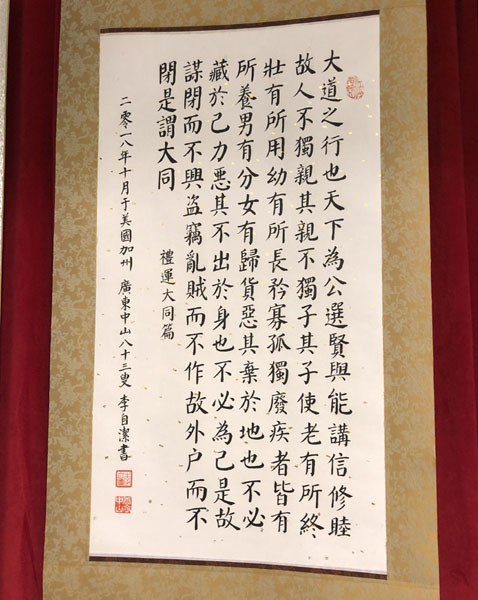 大道之行也天下為公選賢與能講信修睦
故人不獨親其親不獨子其子使老有所終
壯有所用幼有所長矜寡孤獨廢疾者皆有
所養男有分女有歸貨惡其棄於地也不必
藏於己力惡其不出於身也不必為己是故
謀閉而不興盜竊亂賊而不作故外户而不
閉是謂大同
禮運大同篇
二零一八年十月于美國加州 廣東中山八十三叟 李自潔書